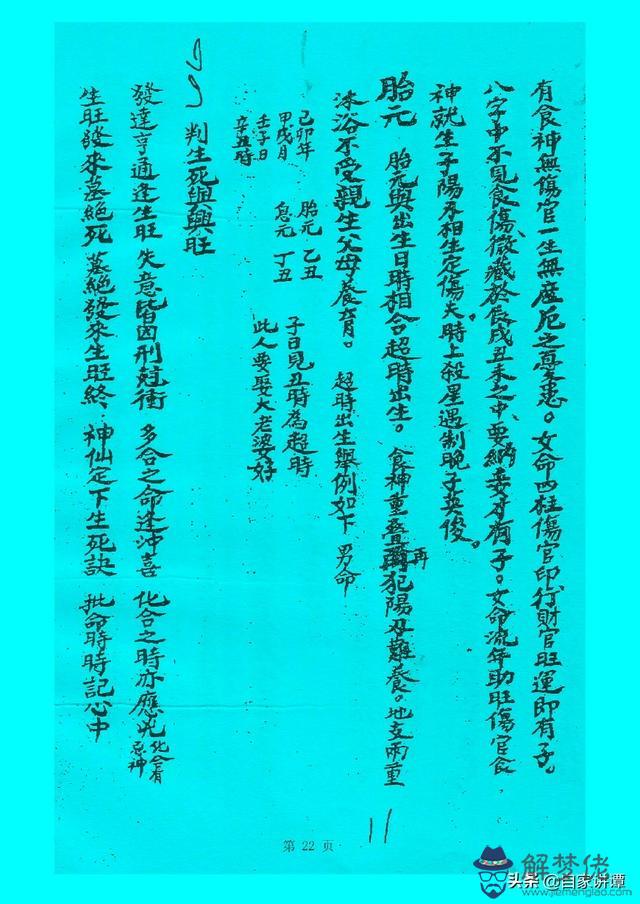 有食神無傷官一生無產厄之憂患。女命四柱傷官印行財官旺運即有子。
八字中不見食傷、微藏於辰戌丑未之中、要納妾才有子。女命流年助旺傷官食
神就生子陽刃相生定傷夫。時上殺星遇制晚子英俊。
胎元 胎元與出生日時相合超時出生。食神重疊再犯陽刃難養。地支兩重
沐浴不受親生父母養育。 超時出生舉例如下 男命
己卯年
甲戌月
壬子日
辛丑時
胎元 乙丑
息元 丁丑
子日見丑時為超時
此人要娶大老婆好
判生死與興旺
發達亨通逢生旺 失意皆因刑尅衝 多合之命逢沖喜 化合之時亦應凶 化合有忌神
生旺發來墓絕死 墓絕發來生旺終 神仙定下生死訣 批命時時記心中
11
第 22 页
解梦佬
www.jiemenglao.com
头条 @自家讲谭